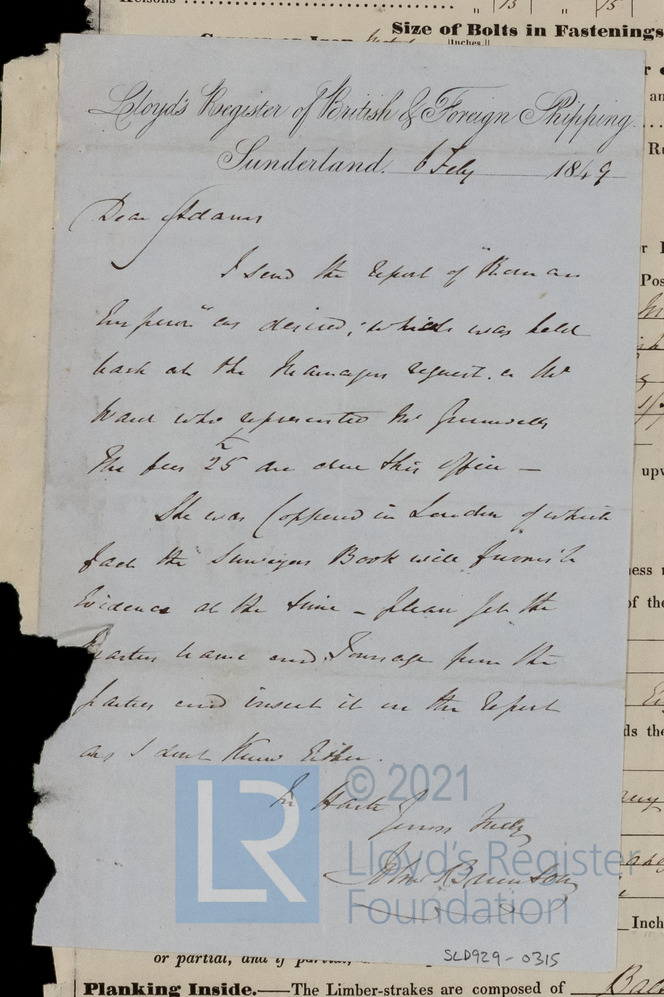 Keisons 13 " 15
Size of Bolts in Fastenings
Inches.
Lloyd's Register of British & Foreign Shipping.
Sunderland. 6 Feby 1849
Dear Adams
I send the report of "Roman
Emperor" as desired, which was held
back at the Managers request. a Mr
who represented Mr
The fees £5 are due this Office —
She was Coppered in London of which
fact the Surveyors Book will furnish
Evidence at the time — please get the
Masters name and Tonnage from the
parties and insert it in the report
as I dont know Either.
In Haste
Yours truly
John
© 2021
LR
Lloyd's Register
Foundation
SLD929-0315
Inch
or partial, and if partial,
Planking Inside.—The Limber-strakes are composed of